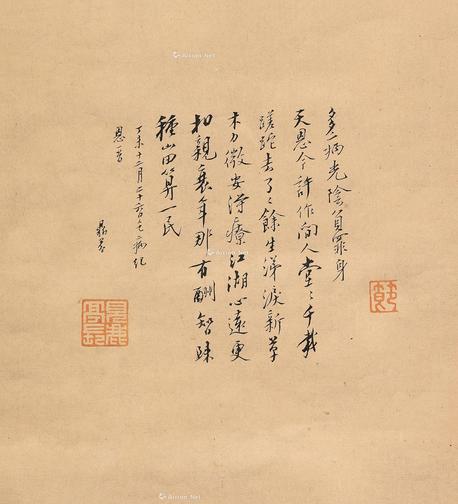 多病光陰負罪身
天恩今許作閒人堂〻千載
蹉跎去了〻餘生涕淚新草
木力微安得療江湖心遠更
相親衰年那有酬智
種山田算一民
丁未十二月二十六日乞病紀
恩一首
鼎芬
Artron.Net
Artron.Net